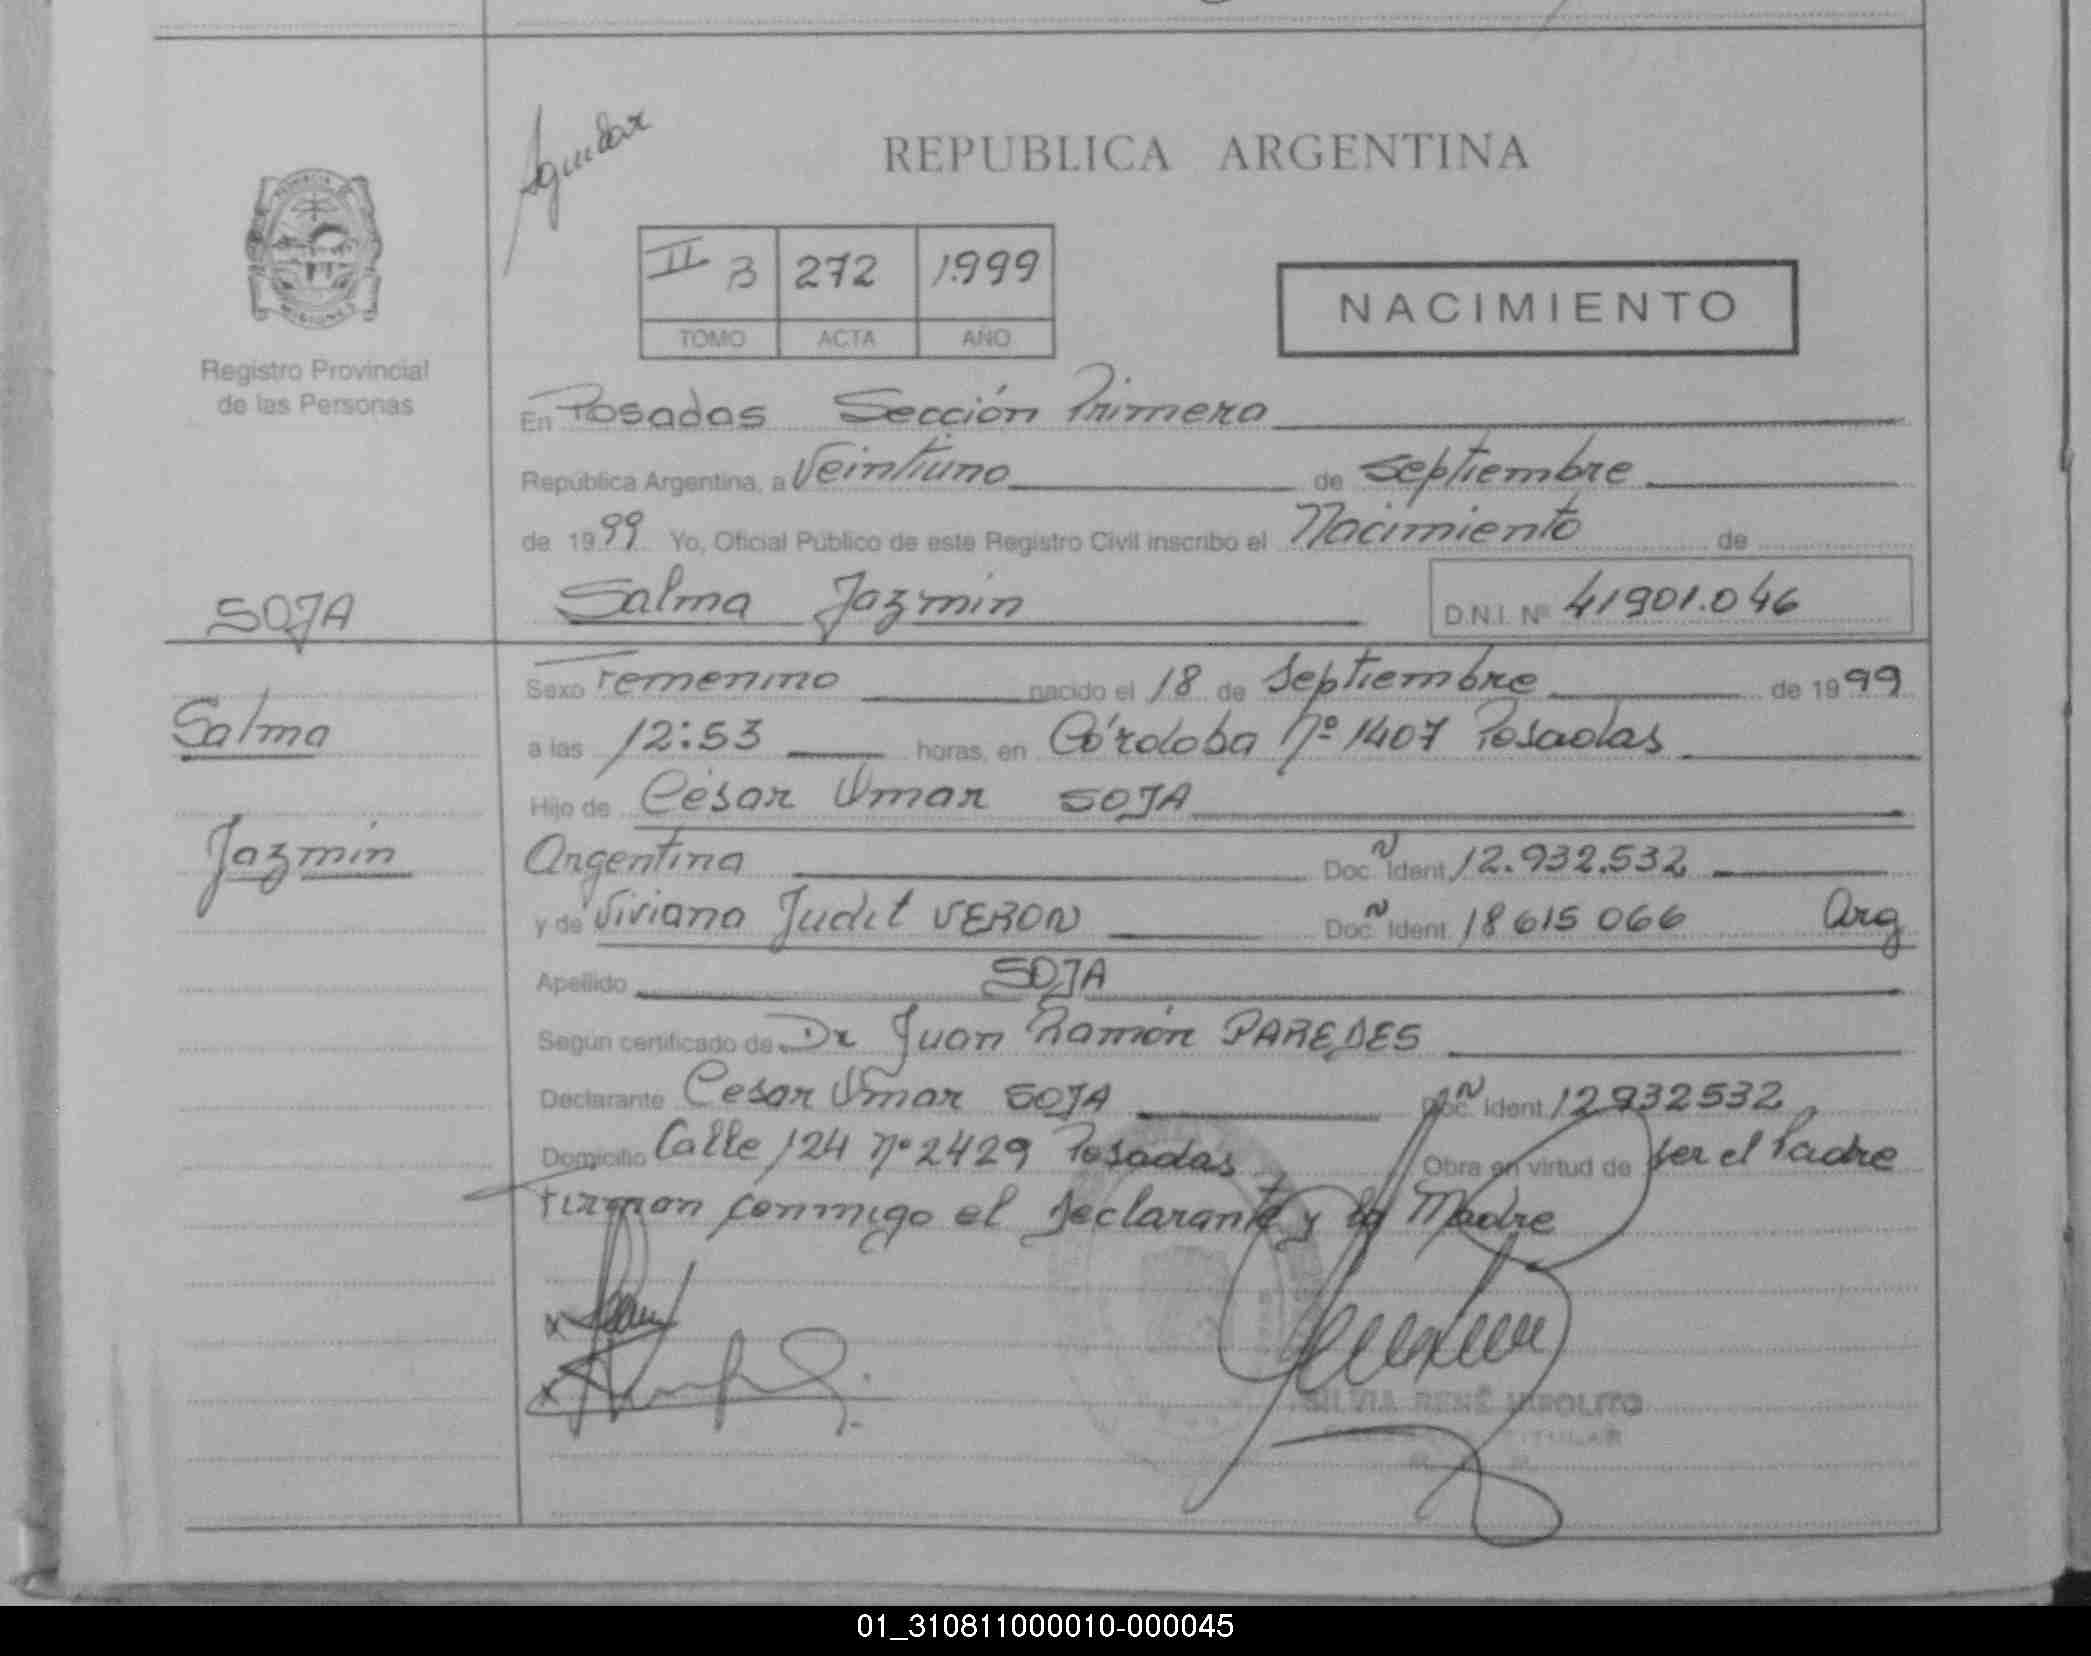 Aguilar
REPUBLICA ARGENTINA
II B 272 1999
TOMO ACTA AÑO
NACIMIENTO
Registro Provincial
de las Personas
En Posadas Sección Primera
República Argentina, a Veintiuno de Septiembre
de 1999 Yo, Oficial Público de este Registro Civil inscribo el Nacimiento de
Salma Jazmin D.N.I. Nº 41901.046
SOJA
Salma
Jazmin
Sexo Femenino nacido el 18 de Septiembre de 1999
a las 12:53 horas, en Córdoba Nº 1407 Posadas
Hijo de César Omar SOJA
Argentina Doc. Ident 12.932.532
y de Viviana Judit VERON Doc. Ident. 18 615 066 Arg
Apellido SOJA
Según certificado de Dr Juan Ramón PAREDES
Declarante Cesar Omar SOJA Doc. Ident 12932532
Domicilio Calle 124 nº 2429 Posadas Obra en virtud de ser el Padre
Firman conmigo el declarante y la Madre
SILVIA RENÉ IPOLITO
TITULAR
01_310811000010-000045